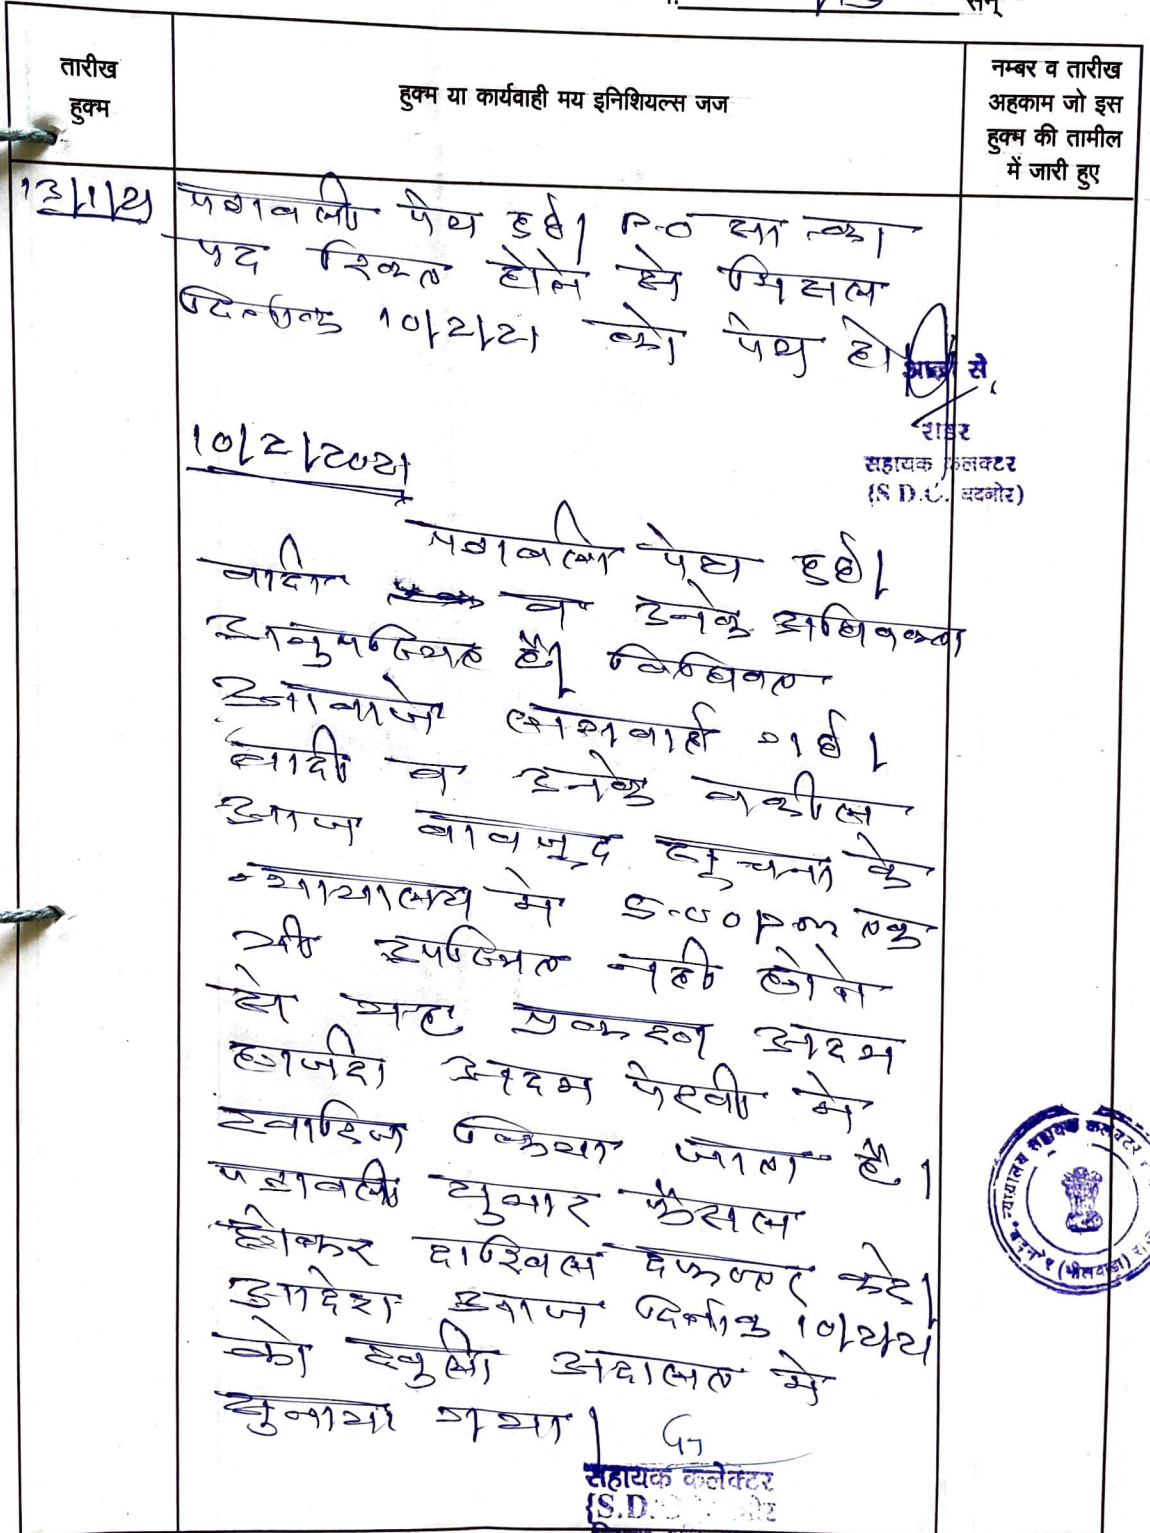 सन्
तारीख
हुक्म
हुक्म या कार्यवाही मय इनिशियल्स जज
नम्बर व तारीख
अहकाम जो इस
हुक्म की तामील
में जारी हुए
13/1/21 पत्रावली पेश हुई। P.O सा का
पद रिक्त होने से मिसल
दिनांक 10/2/21 को पेश हो
आज्ञा से
रीडर
सहायक कलक्टर
(S D.C. बदनोर)
10/2/2021
पत्रावली पेश हुई।
वादी व उनके अधिवक्ता
अनुपस्थित है। विधिवत
आवाजे लगवाई गई।
वादी व उनके वकील
आज बावजूद सूचना के
न्यायालय मे 5.00 pm तक
भी उपस्थित नही होने
से यह प्रकरण अदम
हाजरी अदम पेरवी मे
खारिज किया जाता है।
पत्रावली शुमार फैसल
होकर दाखिल दफ्तर करे।
आदेश आज दिनांक 10/2/21
को खुली अदालत मे
सुनाया गया।
सहायक कलेक्टर
(S.D.
न्यायालय सहायक कलेक्टर
बदनोर (भीलवाड़ा)